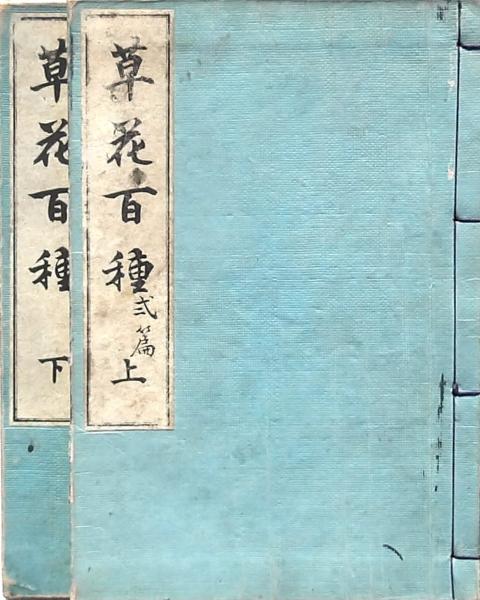 草花百種 弐篇 上
草花百種 下